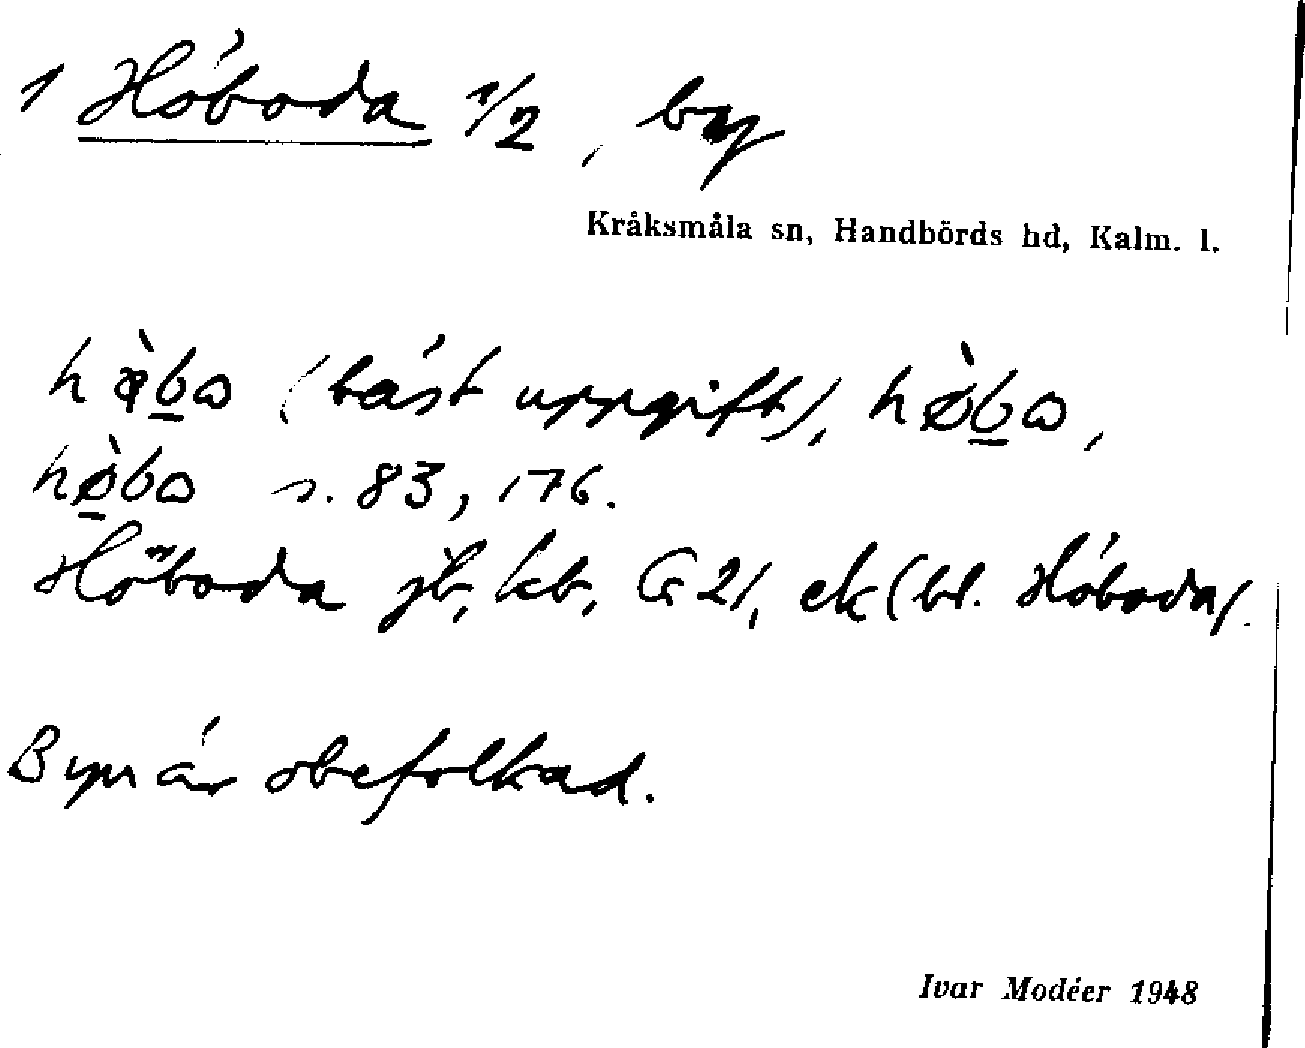 1 Höboda 1/2, by
Kråksmåla sn, Handbörds hd, Kalm. l.
(bäst uppgift),
s. 83, 176.
Höboda jb, kb, G 21, ek (bl. Höboda).
Byn är obefolkad.
Ivar Modéer 1948